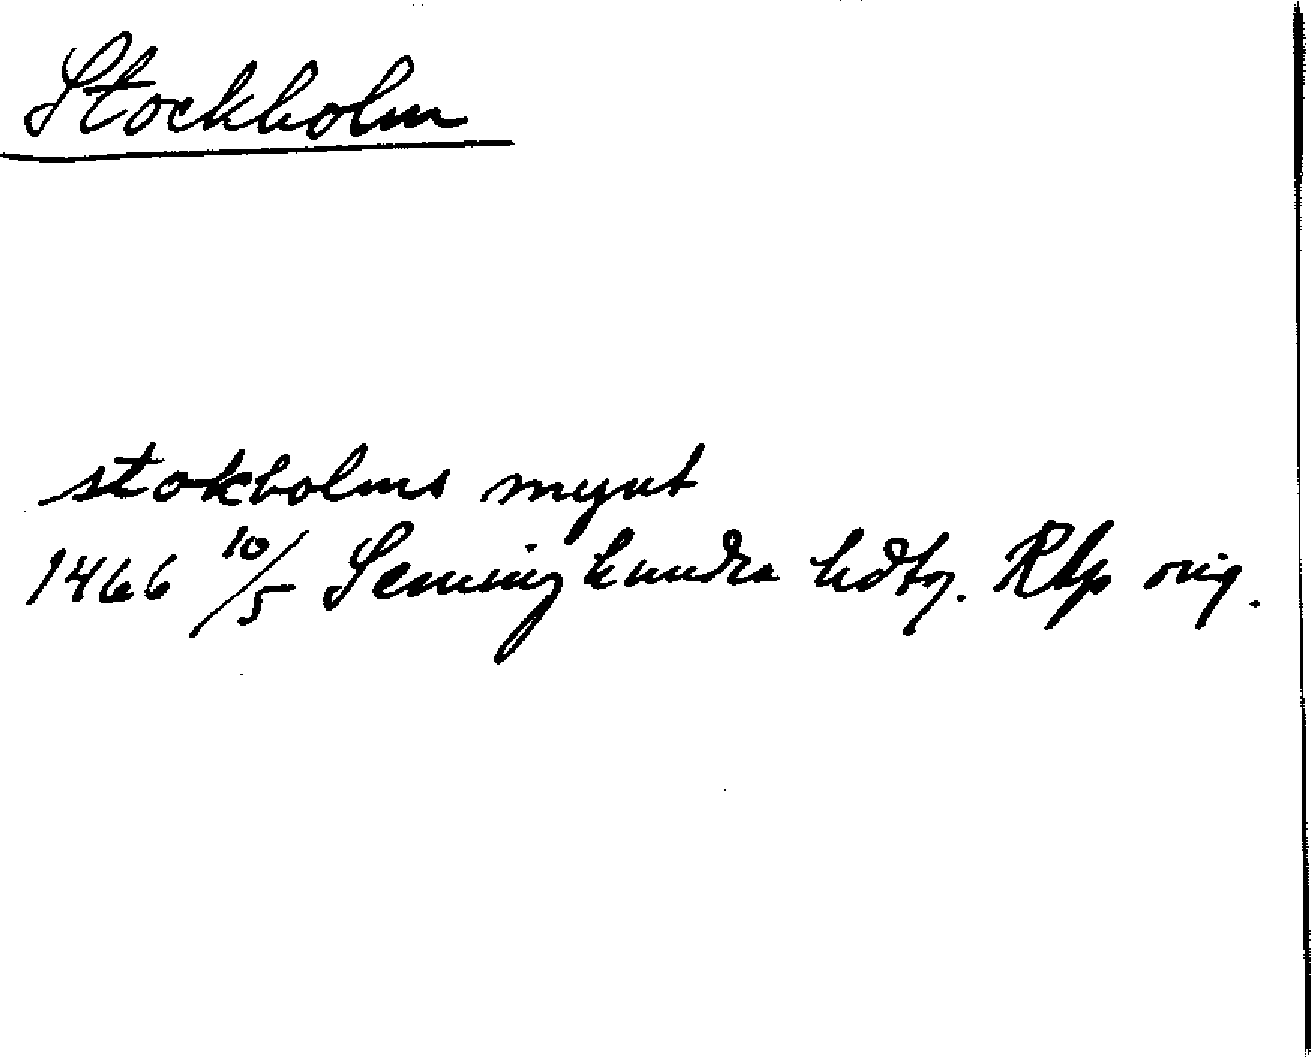 Stockholm
stokholms mynt
1466 10/5 Seminghundra hdtg. RAp orig.